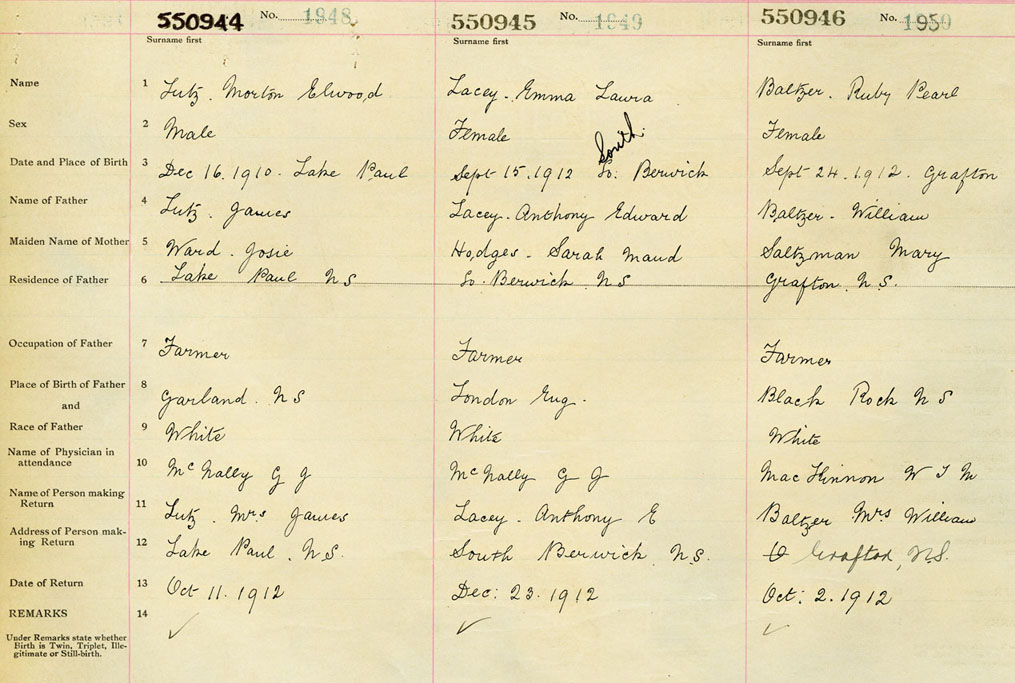 550944 No. 1948 550945 No. 1949 550946 No. 1950
Surname first Surname first Surname first
Name 1 Lutz. Morton Elwood Lacey. Emma Laura Baltzer. Ruby Pearl
Sex 2 Male Female Female
South
Date and Place of Birth 3 Dec 16. 1910. Lake Paul Sept 15. 1912 So: Berwick Sept 24. 1912. Grafton
Name of Father 4 Lutz. James Lacey. Anthony Edward Baltzer. William
Maiden Name of Mother 5 Ward. Josie Hodges. Sarah Maud Saltzman Mary
Residence of Father 6 Lake Paul N S So. Berwick N S Grafton. N S.
Occupation of Father 7 Farmer Farmer Farmer
Place of Birth of Father 8 Garland. N S London Eng. Black Rock N S
and
Race of Father 9 White White White
Name of Physician in
attendance 10 Mc Nally G J Mc Nally G J MacKinnon W T M
Name of Person making
Return 11 Lutz. Mrs James Lacey. Anthony E Baltzer Mrs William
Address of Person mak-
ing Return 12 Lake Paul. N.S. South Berwick N.S. Grafton, N.S.
Date of Return 13 Oct 11. 1912 Dec: 23. 1912 Oct: 2. 1912
REMARKS 14
Under Remarks state whether
Birth is Twin, Triplet, Ille-
gitimate or Still-birth.